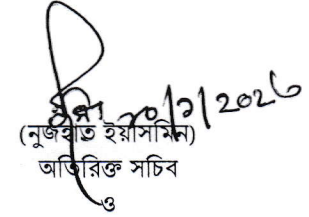 ২০/১/২০২৬
(নুজহাত ইয়াসমিন)
অতিরিক্ত সচিব
ও